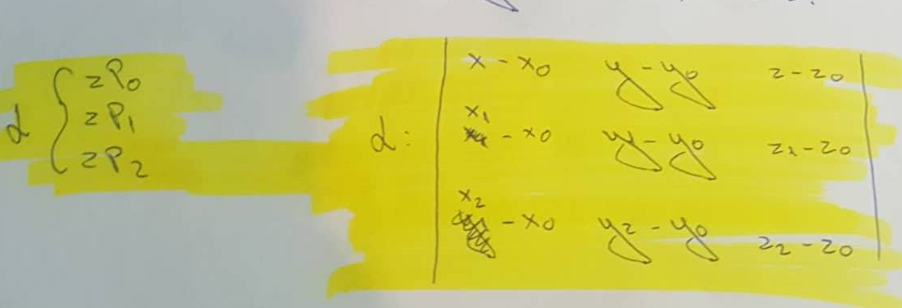 α { zP₀
zP₁
zP₂
α: | x - x₀ y - y₀ z - z₀ |
x₁ - x₀ y - y₀ z₁ - z₀
x₂ - x₀ y₂ - y₀ z₂ - z₀